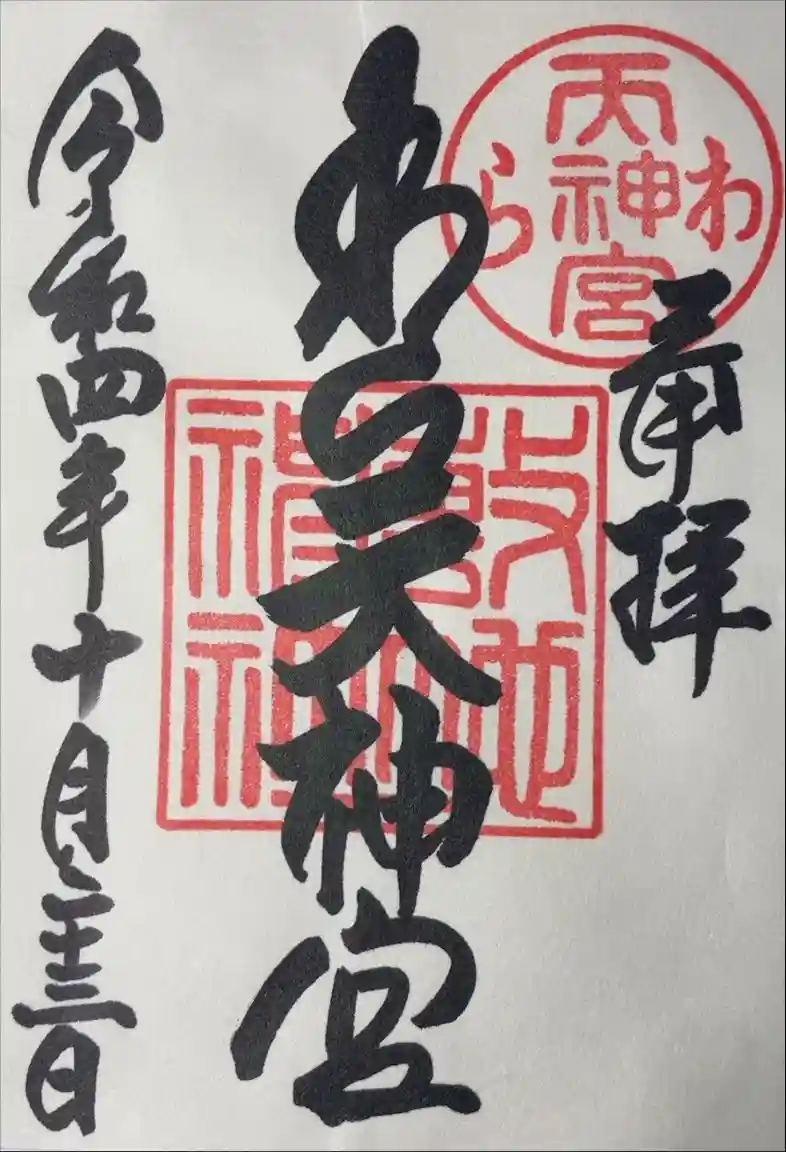 奉拝
わら天神宮
令和四年十月二十三日
わら
天神宮
敷地